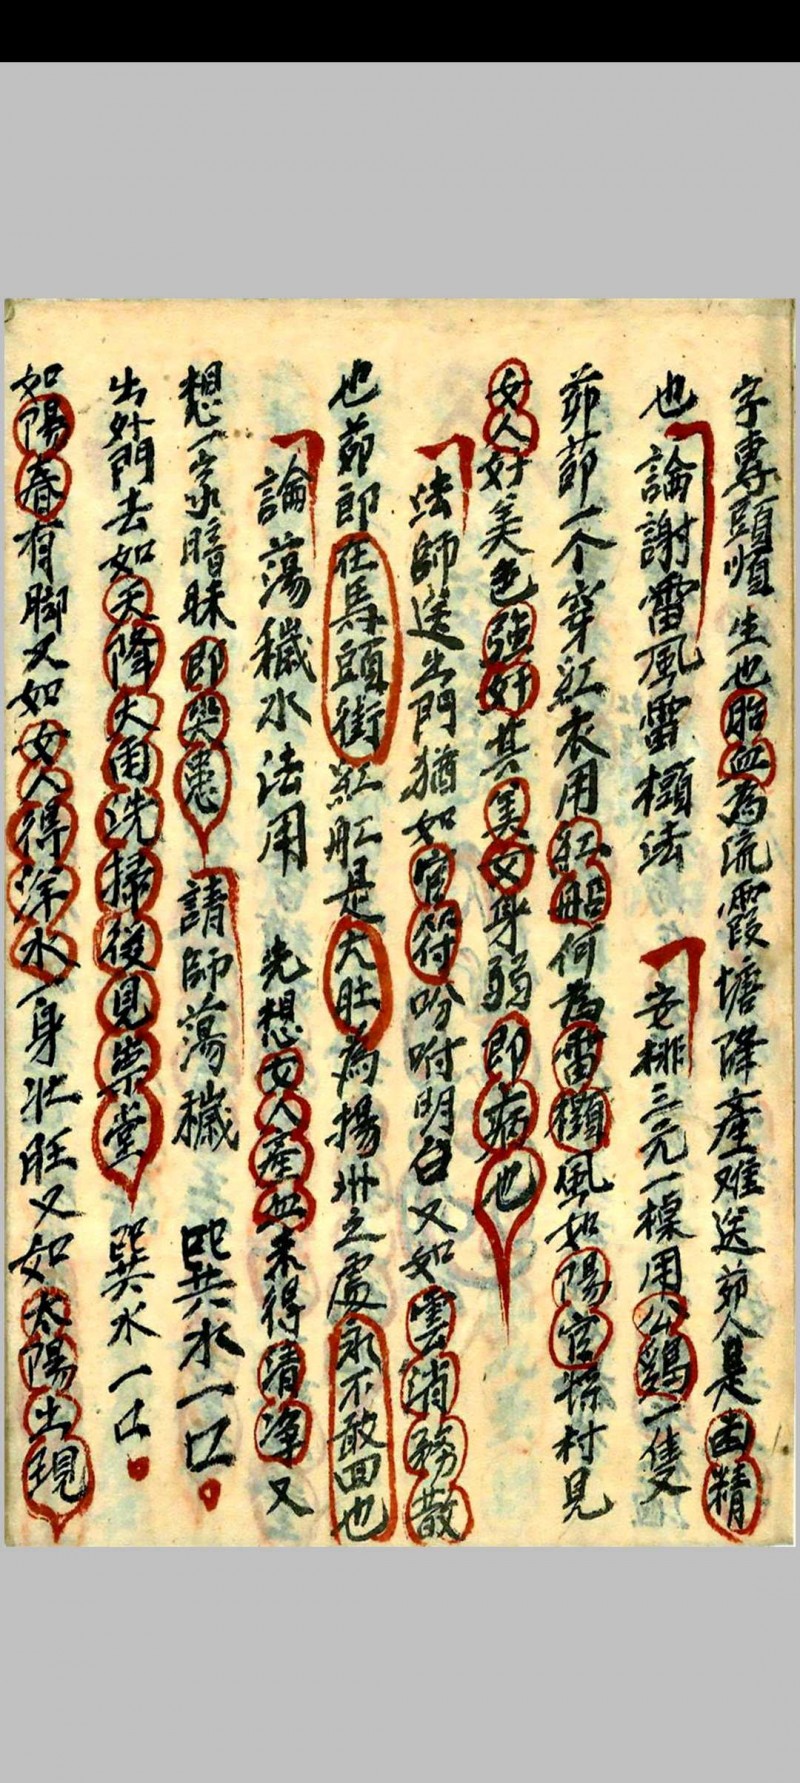 字專頭煩生也胎血為流霞塘降產难送茆人是凶精
也 論謝雷風雷櫃法 安排三元一樣用公鷄一隻
茆茆一个穿紅衣用紅船何為雷櫃風如陽官採村見
女人好美色強奸其美女身弱即病也
法師送出門猶如官符吩咐明白又如雲消務散
也茆即在馬頭街紅舡是大肚為揚州之處永不敢回也
論蕩穢水法用 先想女人產血未得清淨又
想一字水暗昧即與患 請師蕩穢 共水一口
出外門去如天降大雨洗掃後見崇堂 共水一口
如陽春有脚又如女人得洋水一身壯旺又如太陽出現